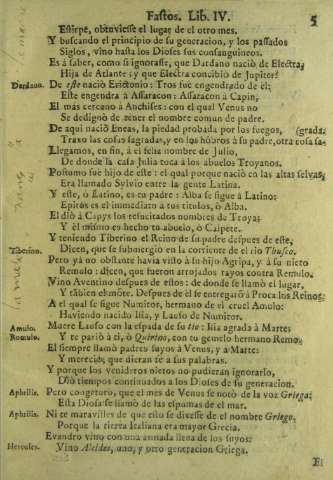 Fastos. Lib. IV. 5
Estirpe, obtuviesse el lugar de el otro mes.
Y buscando el principio de su generacion, y los passados
Siglos, vino hasta los Dioses sus consanguineos.
Es à saber, como si ignorasse, que Dardano naciò de Electra,
Hija de Atlante: y que Electra concibiò de Jupiter.
Dardano. De este naciò Erictonio: Tros fue engendrado de èl;
Este engendra à Assaracon: Assaracon à Capin,
El màs cercano à Anchises: con el qual Venus no
Se dedignò de tener el nombre comun de padre.
De aqui naciò Eneas, la piedad probada por los fuegos,
Traxo las cosas sagradas, y en los hõbros à su padre, otra cosa sa- (grada;
Llegamos, en fin, à el feliz nombre de Julio,
De donde la casa Julia toca à los abuelos Troyanos.
Postumo fue hijo de este: el qual porque naciò en las altas selvas,
Era llamado Sylvio entre la gente Latina.
Y este, ò Latino, es tu padre: Alba se sigue à Latino:
Epitos es el immediato à tus titulos, ò Alba.
El diò à Capys los resucitados nombres de Troya:
Y èl mismo es hecho tu abuelo, ò Calpete.
Y teniendo Tiberino el Reino de su padre despues de este,
Tiberino. Dicen, que se submergiò en la corriente de el rio Thusco.
Pero yà no obstante havia visto à su hijo Agripa, y à su nieto
Remulo: dicen, que fueron arrojados rayos contra Remulo.
Vino Aventino despues de estos: de donde se llamò el lugar,
Y tãbien el mõte. Despues de èl se entregarõ à Proca los Reinos:
A el qual se sigue Numitor, hermano de el cruel Amulo:
Haviendo nacido Ilia, y Lauso de Numitor.
Amulo. Muere Lauso con la espada de su tio: Ilia agrada à Marte:
Romulo. Y te pariò à ti, ò Quirino, con tu gemelo hermano Remo.
El siempre llamò padres suyos à Venus, y à Marte:
Y mereciò, que dieran fè à sus palabras.
Y porque los venideros nietos no pudieran ignorarlo,
Diò tiempos continuados à los Dioses de su generacion.
Aphrilis. Pero congeturo, que el mes de Venus se notò de la voz Griega;
Esta Diosa se llamò de las espumas de el mar.
Aphrilis. Ni te maravilles de que esto se dixesse de el nombre Griego,
Porque la tierra Italiana era mayor Grecia.
Evandro vino con una armada llena de los suyos:
Hercules. Vino Alcides, uno, y otro generacion Griega.
El